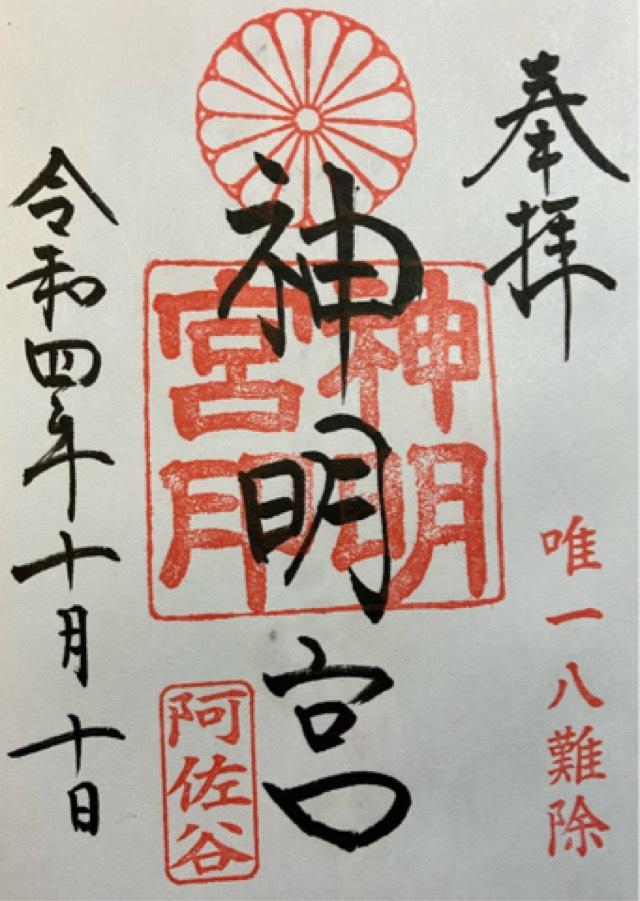 奉拝
唯一八難除
神明宮
神明
宮印
阿佐谷
令和四年十月十日